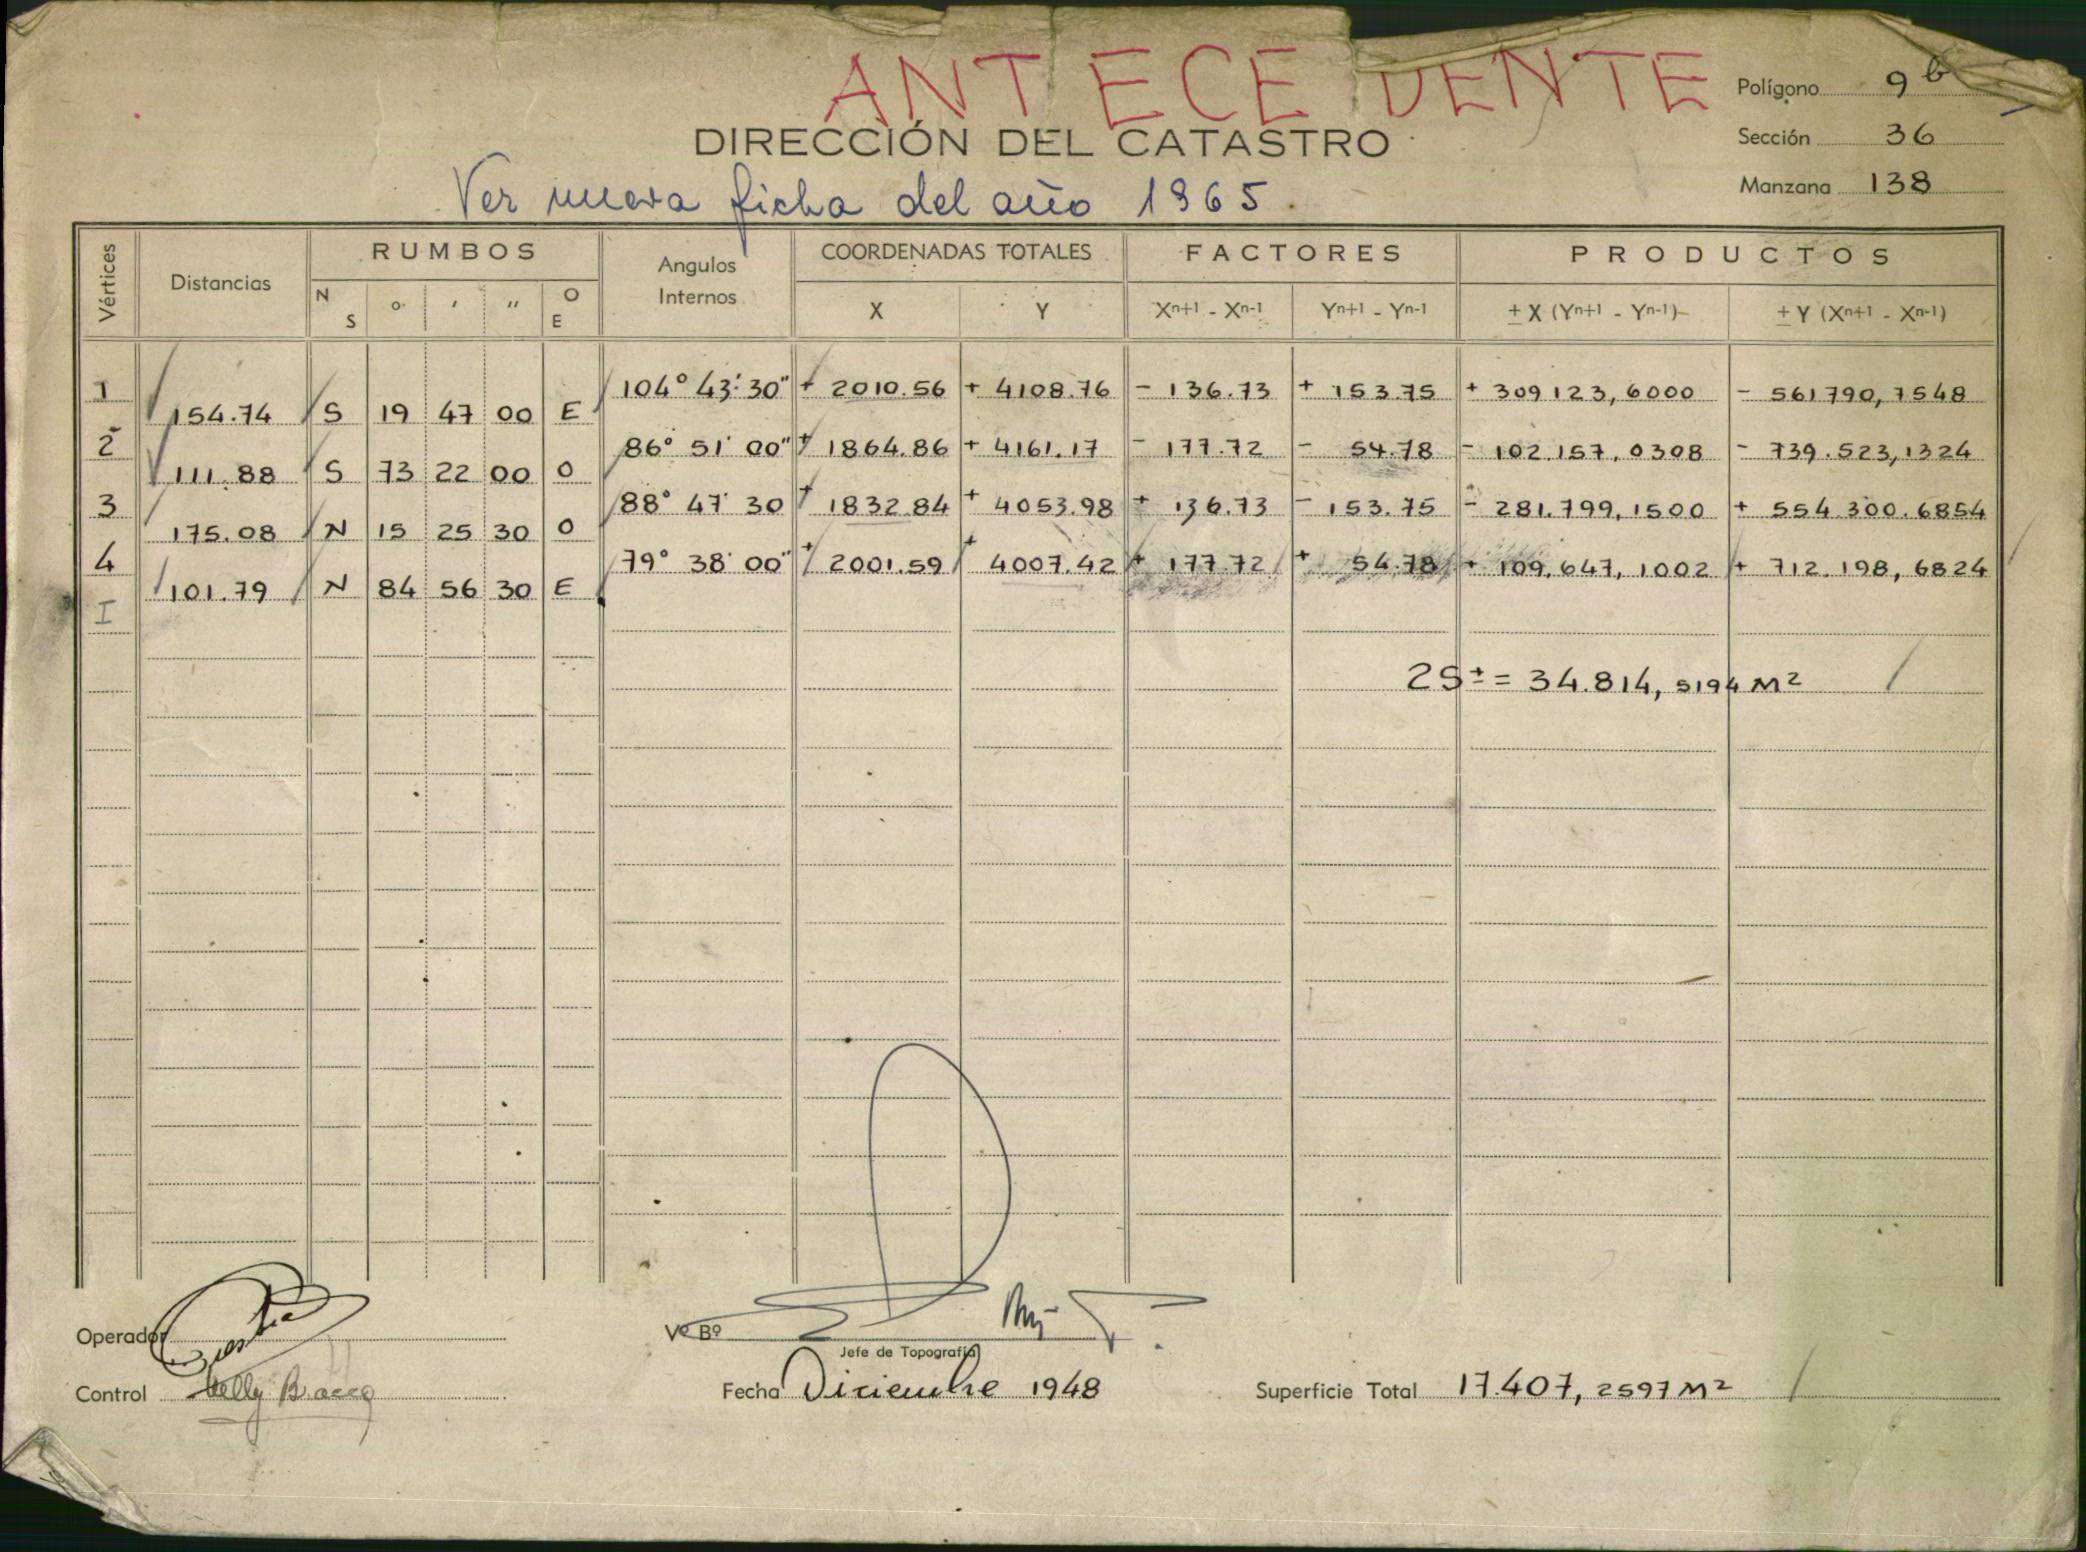 ANTECEDENTE
Polígono 9 b
DIRECCIÓN DEL CATASTRO
Sección 36
Ver nueva ficha del año 1965.
Manzana 138
Vértices Distancias RUMBOS Angulos Internos COORDENADAS TOTALES FACTORES PRODUCTOS
N S o ' '' O E X Y Xn+1 - Xn-1 Yn+1 - Yn-1 ± X (Yn+1 - Yn-1) ± Y (Xn+1 - Xn-1)
1 104° 43' 30" + 2010.56 + 4108.76 - 136.73 + 153.75 + 309123,6000 - 561790,7548
154.74 S 19 47 00 E
2 86° 51' 00" + 1864.86 + 4161.17 - 177.72 - 54.78 - 102.157,0308 - 739.523,1324
111.88 S 73 22 00 O
3 88° 47' 30 + 1832.84 + 4053.98 + 136.73 - 153.75 - 281.799,1500 + 554300.6854
175.08 N 15 25 30 O
4 79° 38' 00" + 2001.59 + 4007.42 + 177.72 + 54.78 + 109.647,1002 + 712.198,6824
101.79 N 84 56 30 E
I
2S ± = 34.814, 5194 M2
Operador
Vº Bº
Jefe de Topografía
Control Nelly Bracco
Fecha Diciembre 1948
Superficie Total 17.407, 2597 M2